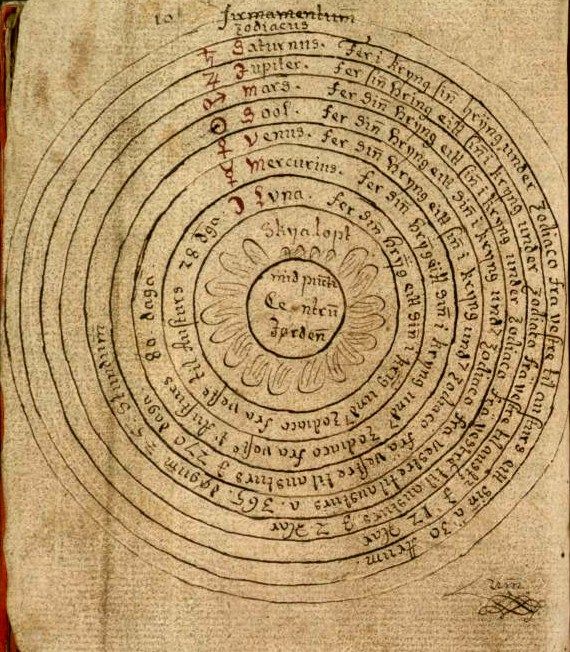 firmamentum
Zodiacus
♄ Saturnus. Fer i kryng sin hrÿng under Zodiaco fra vestre til austurs eitt sin a 30 Arum.
♃ Jupiter. fer sin hring eitt sin i kryng under zodiaco fra vestre til austurs j 12 Aar
♂ Mars. fer sin hryng eitt sin i kryng under Zodiaco fra vestre til austurs j 2 Aar
☉ Sool. fer sin hryng eitt sin i kryng und Zodiaco fra vestre til austurs a 365 dögum Stundum
♀ Venus. Fer sin hryng eitt sin i kryng und Zodiaco fra vestre til Austurs j 270 daga
☿ Mercurius. Fer sin hryg eitt sin i kryng und Zodiaco fra vestre til Austurs 80 daga
☽ Luna. fer sin hryg eitt sin i kryg und Zodiaco fra vestre til Austurs 28 dga.
Skyalopt
mid puncti
Centru
Jorden
rum